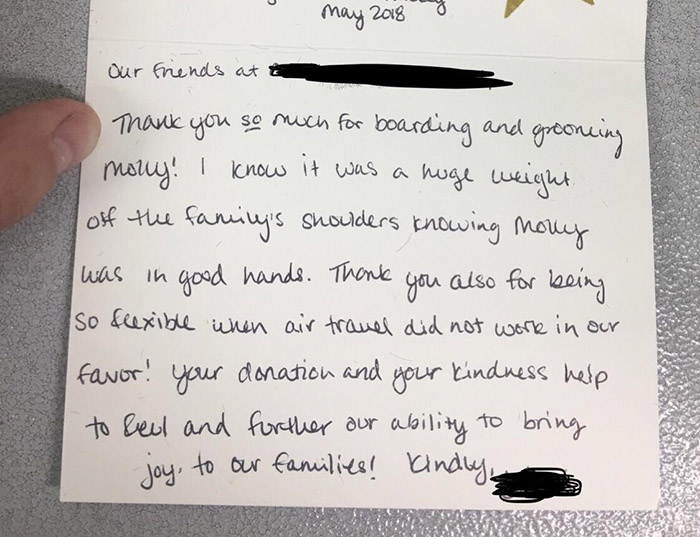 May 2018
Our friends at
Thank you so much for boarding and grooming
Molly! I know it was a huge weight
off the family's shoulders knowing Molly
was in good hands. Thank you also for being
so flexible when air travel did not work in our
favor! Your donation and your kindness help
to fuel and further our ability to bring
joy, to our families! Kindly,